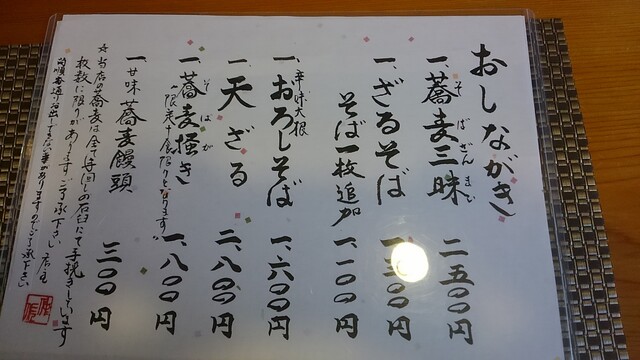 おしながき
一、蕎麦三昧 二五〇〇円
そばざんまい
一、ざるそば 〇〇円
そば一枚追加 一、一〇〇円
辛味大根
一、おろしそば 一、六〇〇円
一、天ざる 二、八〇〇円
一、蕎麦掻き 一、八〇〇円
そばがき
限定十食限りとなります
一、甘味 蕎麦饅頭 三〇〇円
☆当店の蕎麦は全て手回しの石臼にて手挽きしています
枚数に限りがあります ご了承下さい 店主
順番通り出せない事がありますのでご了承下さい